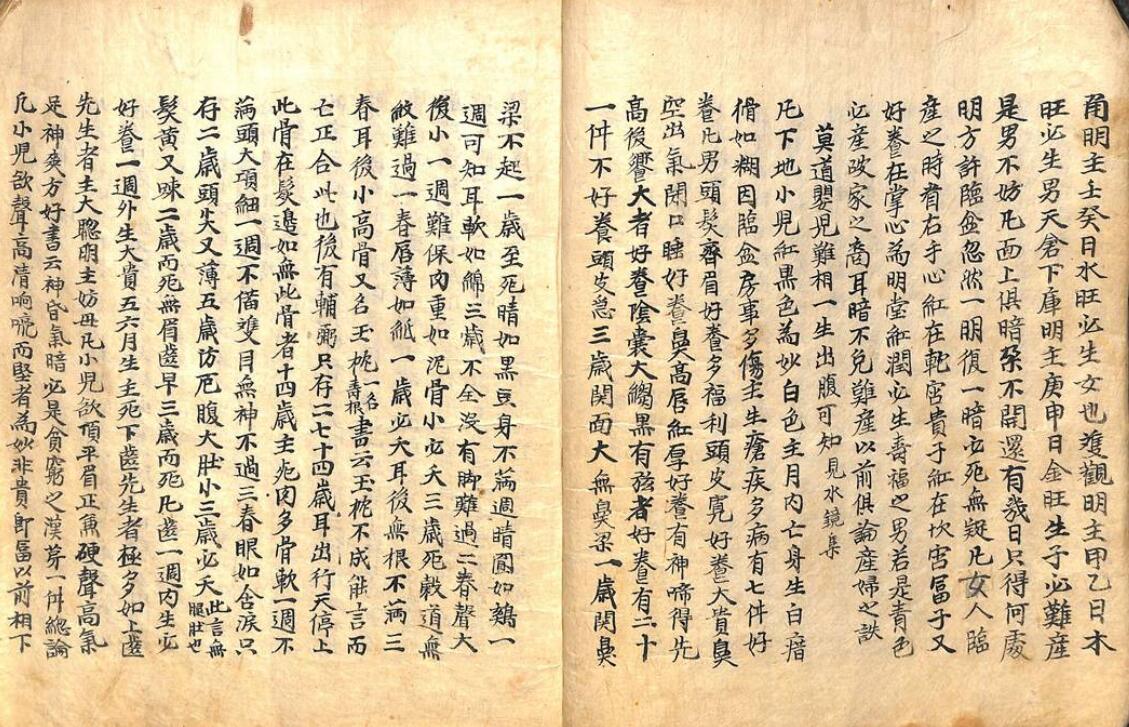 角明主壬癸日水旺必生女也準觀明主甲乙日木
旺必生男天倉下庫明主庚申日金旺生子必難産
是男不妨凢面上俱暗朶不開還有幾日只得何處
明方許臨盆忽然一明復一暗必死無疑凢女人臨
産之時看右手心紅在乾宮貴子紅在坎宮冨子又
好養在掌心為明堂紅潤必生壽福之男若是青色
必産破家之裔耳暗不免難産以前俱論産婦之訣
莫道嬰児難相一生出腹可知見水鏡集
凢下地小児紅黒色為妙白色主月内亡身生白㾦
滑如糊因臨盆房事多傷主生瘡疾多病有七件好
養凢男頭髮齊眉好養多福利頭皮寛好養大貴鼻
空出氣閉口睡好養鼻高唇紅厚好養有神啼得先
高後響大者好養陰囊大鰡黒有絃者好養有二十
一件不好養頭皮急三歳関面大無鼻梁一歳関鼻
梁不起一歳至死睛如黒豆身不滿週睛圓如鷄一
週可知耳軟如綿三歳不全没有脚難過二春聲大
後小一週難保肉重如泥骨小必夭三歳死穀道無
紋難過一春唇薄如紙一歳必夭耳後無根不滿三
春耳後小高骨又名玉枕一名壽根書云玉枕不成能言而
亡正合此也後有輔弼只存二七十四歳耳出行天停上
此骨在髮邊如無此骨者十四歳主死肉多骨軟一週不
滿頭大項細一週不偹雙目無神不過三春眼如含淚只
存二歳頭尖又薄五歳防厄腹大肚小三歳必夭此言無腿肚也
髮黄又疎二歳而死無眉齒早三歳而死凢齒一週内生必
好養一週外生大貴五六月生主死下齒先生者極多如上齒
先生者主大聰明主妨母凢小児欲頂平眉正兼硬聲高氣
足神爽方好書云神昏氣暗必是貧窮之漢芽一件總論
凢小児欲聲高清响喨而堅者為妙非貴即冨以前相下